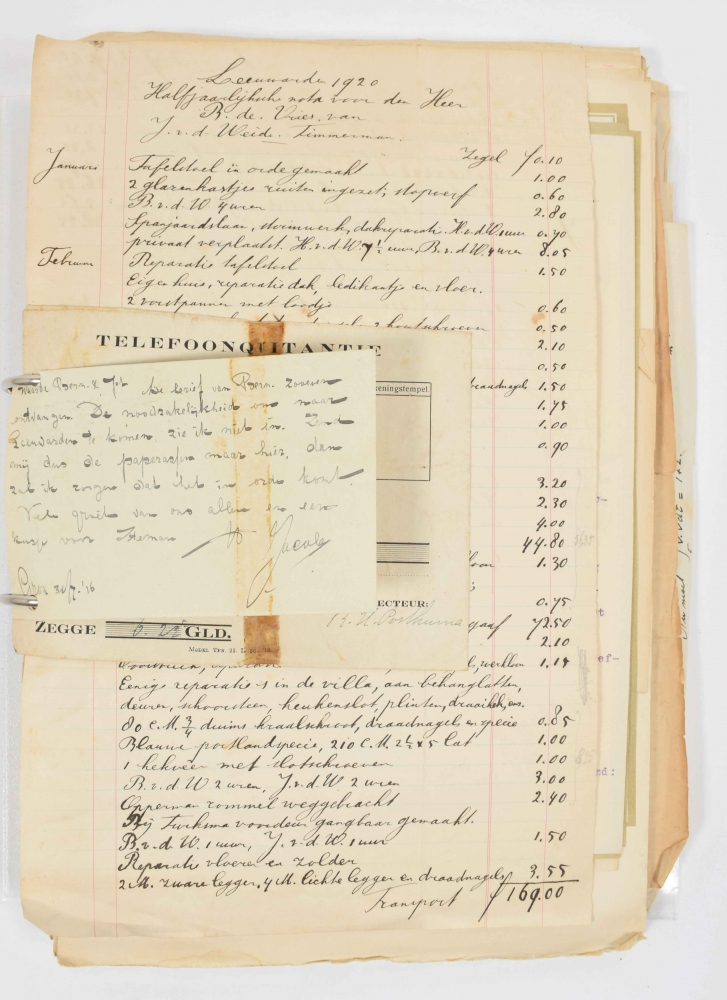 Leeuwarden 1920
Halfjaarlijksche nota voor den Heer
B. de Vries, van
J. v. d. Weide. Timmerman.
Zegel f 0.10
Januari Tafelstoel in orde gemaakt 1.00
2 glazenkastjes ruiten ingezet, stopverf 0.60
B. v. d. W 4 uren 2.80
Spanjaardslaan, stormwerk, dakreparatie. H. v. d. W. 1 uur 0.70
privaat verplaatst. H. v. d. W. 7½ uur, B. v. d. W. 4 uren 8.05
Februari Reparatie tafelstoel 1.50
Eigen huis, reparatie dak, ledikantje en vloer.
2 vorstpannen met loodje 0.60
houtschroeven 0.50
2.10
0.50
draadnagels 1.50
1.75
1.00
0.90
3.20
2.30
4.00
44.80
1.30
0.75
72.50
2.10
werkloon 1.14
TELEFOONQUITANTIE
eningstempel.
ECTEUR:
ZEGGE 6.25 GLD.
Waarde Bern. & Jet De brief van Bern. zooeven
ontvangen De noodzakelijkheid om naar
Leeuwarden te komen, zie ik niet in. Zend
mij dus de paperassen maar hier, dan
zal ik zorgen dat het in orde komt.
Veel groet van ons allen en een
kusje voor Herman
Jacob
Eenige reparatie's in de villa, aan behanglatten,
deuren, schoorsteen, keukenslot, plinten, draaihek, enz.
80 c.M. ¾ duims kraalschroot, draadnagels en specie 0.85
Blauwe portlandspecie, 210 c.M. 2½ x 5 lat 1.00
1 hekveer met slotschroeven 1.00
B. v. d. W 2 uren, J. v. d. W 2 uren 3.00
Opperman rommel weggebracht 2.40
Bij Turksma voordeur gangbaar gemaakt.
B. v. d. W. 1 uur, J. v. d. W. 1 uur 1.50
Reparatie vloeren en zolder
2 M. zware legger, 4 M. lichte legger en draadnagels 3.55
Transport f 169.00